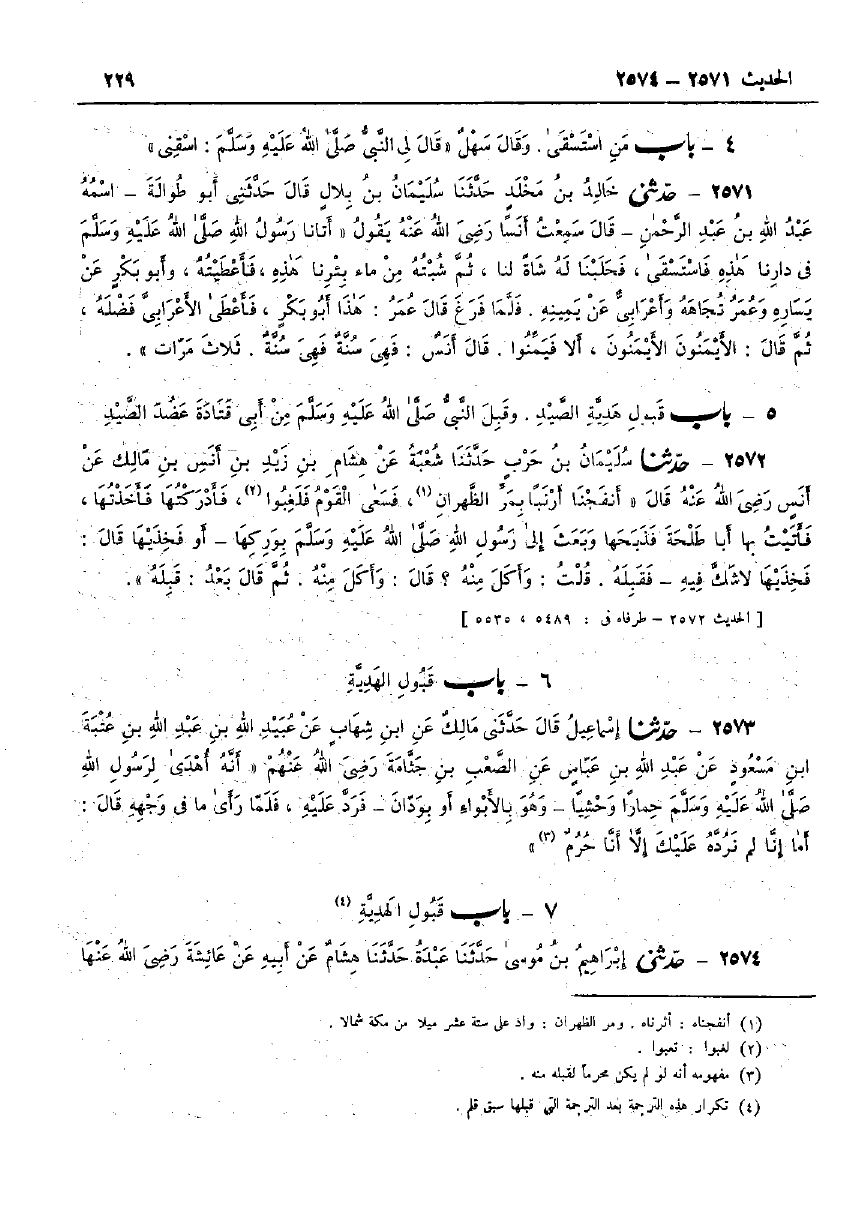 الحديث ٢٥٧١ – ٢٥٧٤ ٢٢٩
٤ – باب مَنِ اسْتَسْقَىٰ . وَقَالَ سَهْلٌ « قَالَ لِى النَّبِىُّ صَلَّى اللهُ عَلَيْهِ وَسَلَّمَ : اسْقِنِى »
٢٥٧١ – حدّثنى خَالِدُ بنُ مَخْلَدٍ حَدَّثَنَا سُلَيْمَانُ بنُ بِلالٍ قَالَ حَدَّثَنِى أَبو طُوالَةَ – اسْمُهُ
عَبْدُ اللهِ بنُ عَبْدِ الرَّحْمٰنِ – قَالَ سَمِعْتُ أَنَسًا رَضِىَ اللهُ عَنْهُ يَقُولُ « أَتَانا رَسُولُ اللهِ صَلَّى اللهُ عَلَيْهِ وَسَلَّمَ
فى دارِنا هَـٰذِهِ فَاسْتَسْقَىٰ ، فَحَلَبْنَا لَهُ شَاةً لنا ، ثُمَّ شُبْتُهُ مِنْ ماءِ بِئْرِنا هَـٰذِهِ ، فَأَعْطَيْتُهُ ، وأَبو بَكْرٍ عَنْ
يَسَارِهِ وَعُمَرُ تُجَاهَهُ وَأَعْرَابِىٌّ عَنْ يَمِينِهِ . فَلَمَّا فَرَغَ قَالَ عُمَرُ : هَـٰذَا أَبُو بَكْرٍ ، فَأَعْطَى الأَعْرَابِىَّ فَضْلَهُ ،
ثُمَّ قَالَ : الأَيْمَنُونَ الأَيْمَنُونَ ، أَلا فَيَمِّنُوا . قَالَ أَنَسٌ : فَهِىَ سُنَّةٌ فَهِىَ سُنَّةٌ . ثَلاثَ مَرَّاتٍ » .
٥ – باب قَبولِ هَدِيَّةِ الصَّيْدِ . وقَبِلَ النَّبِىُّ صَلَّى اللهُ عَلَيْهِ وَسَلَّمَ مِنْ أَبِى قَتَادَةَ عَضُدَ الصَّيْدِ
٢٥٧٢ – حدّثنا سُلَيْمَانُ بنُ حَرْبٍ حَدَّثَنَا شُعْبَةُ عَنْ هِشَامِ بنِ زَيْدِ بنِ أَنَسِ بنِ مَالِكٍ عَنْ
أَنَسٍ رَضِىَ اللهُ عَنْهُ قَالَ « أَنفَجْنَا أَرْنَبًا بِمَرِّ الظَّهْرانِ (١) ، فَسَعَى الْقَوْمُ فَلَغِبُوا (٢) ، فَأَدْرَكْتُهَا فَأَخَذْتُهَا ،
فَأَتَيْتُ بِها أَبا طَلْحَةَ فَذَبَحَها وَبَعَثَ إِلىٰ رَسُولِ اللهِ صَلَّى اللهُ عَلَيْهِ وَسَلَّمَ بِوَرِكِهَا – أَو فَخِذَيْهَا قَالَ :
فَخِذَيْهَا لاشَكَّ فِيهِ – فَقَبِلَهُ . قُلْتُ : وَأَكَلَ مِنْهُ ؟ قَالَ : وَأَكَلَ مِنْهُ . ثُمَّ قَالَ بَعْدُ : قَبِلَهُ » .
[ الحديث ٢٥٧٢ – طرفاه فى : ٥٤٨٩ ، ٥٥٣٥ ]
٦ – باب قَبُولِ الهَدِيَّةِ
٢٥٧٣ – حدّثنا إِسْماعِيلُ قَالَ حَدَّثَنِى مَالِكٌ عَنِ ابنِ شِهَابٍ عَنْ عُبَيْدِ اللهِ بنِ عَبْدِ اللهِ بنِ عُتْبَةَ
ابنِ مَسْعُودٍ عَنْ عَبْدِ اللهِ بنِ عَبَّاسٍ عَنِ الصَّعْبِ بنِ جَثَّامَةَ رَضِىَ اللهُ عَنْهُمْ « أَنَّهُ أَهْدَىٰ لِرَسُولِ اللهِ
صَلَّى اللهُ عَلَيْهِ وَسَلَّمَ حِمارًا وَحْشِيًّا – وَهُوَ بِالأَبْواءِ أَو بِوَدّانَ – فَرَدَّ عَلَيْهِ ، فَلَمّا رَأَىٰ ما فى وَجْهِهِ قَالَ :
أَما إِنَّا لم نَرُدَّهُ عَلَيْكَ إِلَّا أَنَّا حُرُمٌ (٣) »
٧ – باب قَبُولِ الهَدِيَّةِ (٤)
٢٥٧٤ – حدّثنى إِبْرَاهِيمُ بنُ مُوسىٰ حَدَّثَنَا عَبْدَةُ حَدَّثَنَا هِشَامٌ عَنْ أَبِيهِ عَنْ عَائِشَةَ رَضِىَ اللهُ عَنْهَا
(١) أنفجناه : أثرناه . ومر الظهران : واد على ستة عشر ميلا من مكة شمالا .
(٢) لغبوا : تعبوا .
(٣) مفهومه أنه لو لم يكن محرماً لقبله منه .
(٤) تكرار هذه الترجمة بعد الترجمة التى قبلها سبق قلم .